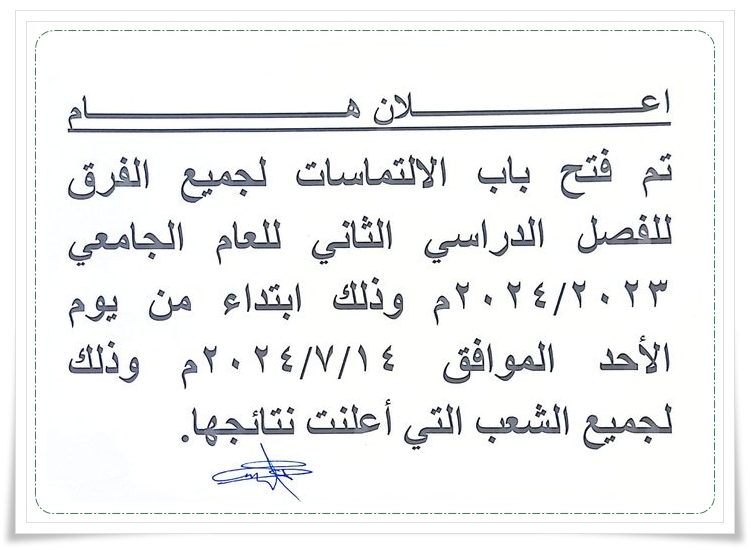 اعـــــــــــلان هـــــــــــام
تم فتح باب الالتماسات لجميع الفرق
للفصل الدراسي الثاني للعام الجامعي
٢٠٢٤/٢٠٢٣م وذلك ابتداء من يوم
الأحد الموافق ٢٠٢٤/٧/١٤م وذلك
لجميع الشعب التي أعلنت نتائجها.